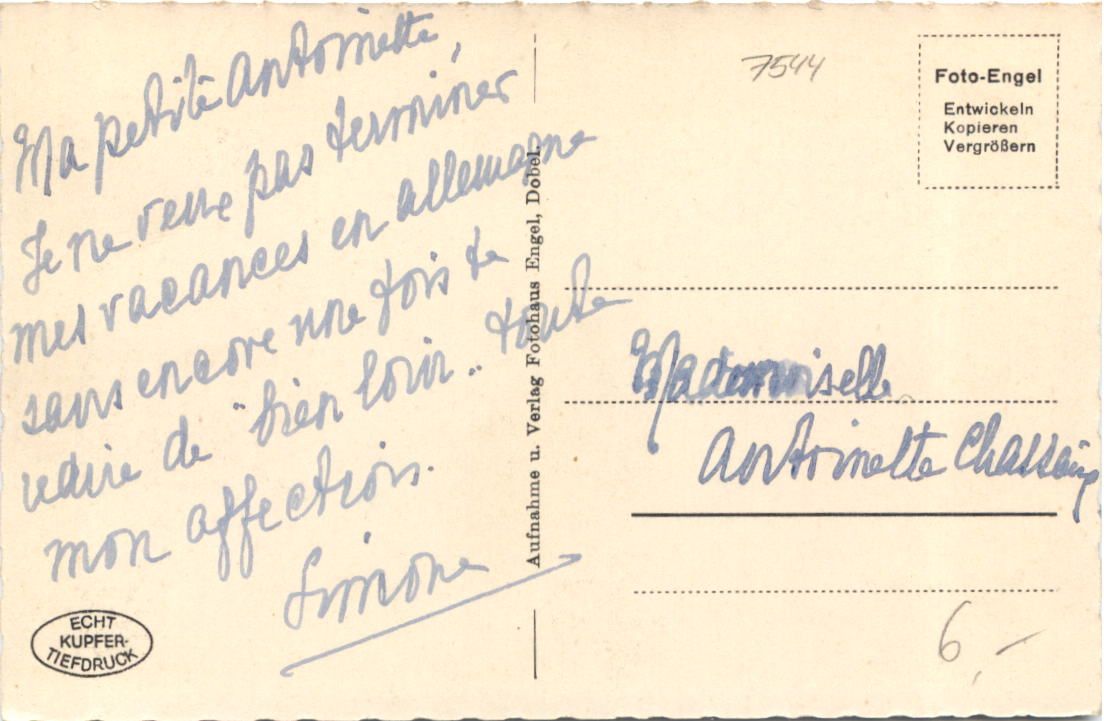 Ma petite Antoinette,
Je ne veux pas terminer
mes vacances en allemagne
sans encore une fois te
de "bien loin" toute
mon affection.
Simone
ECHT
KUPFER-
TIEFDRUCK
Aufnahme u. Verlag Fotohaus Engel, Dobel.
7544
Foto-Engel
Entwickeln
Kopieren
Vergrößern
Mademoiselle
Antoinette Chassaing
6,-